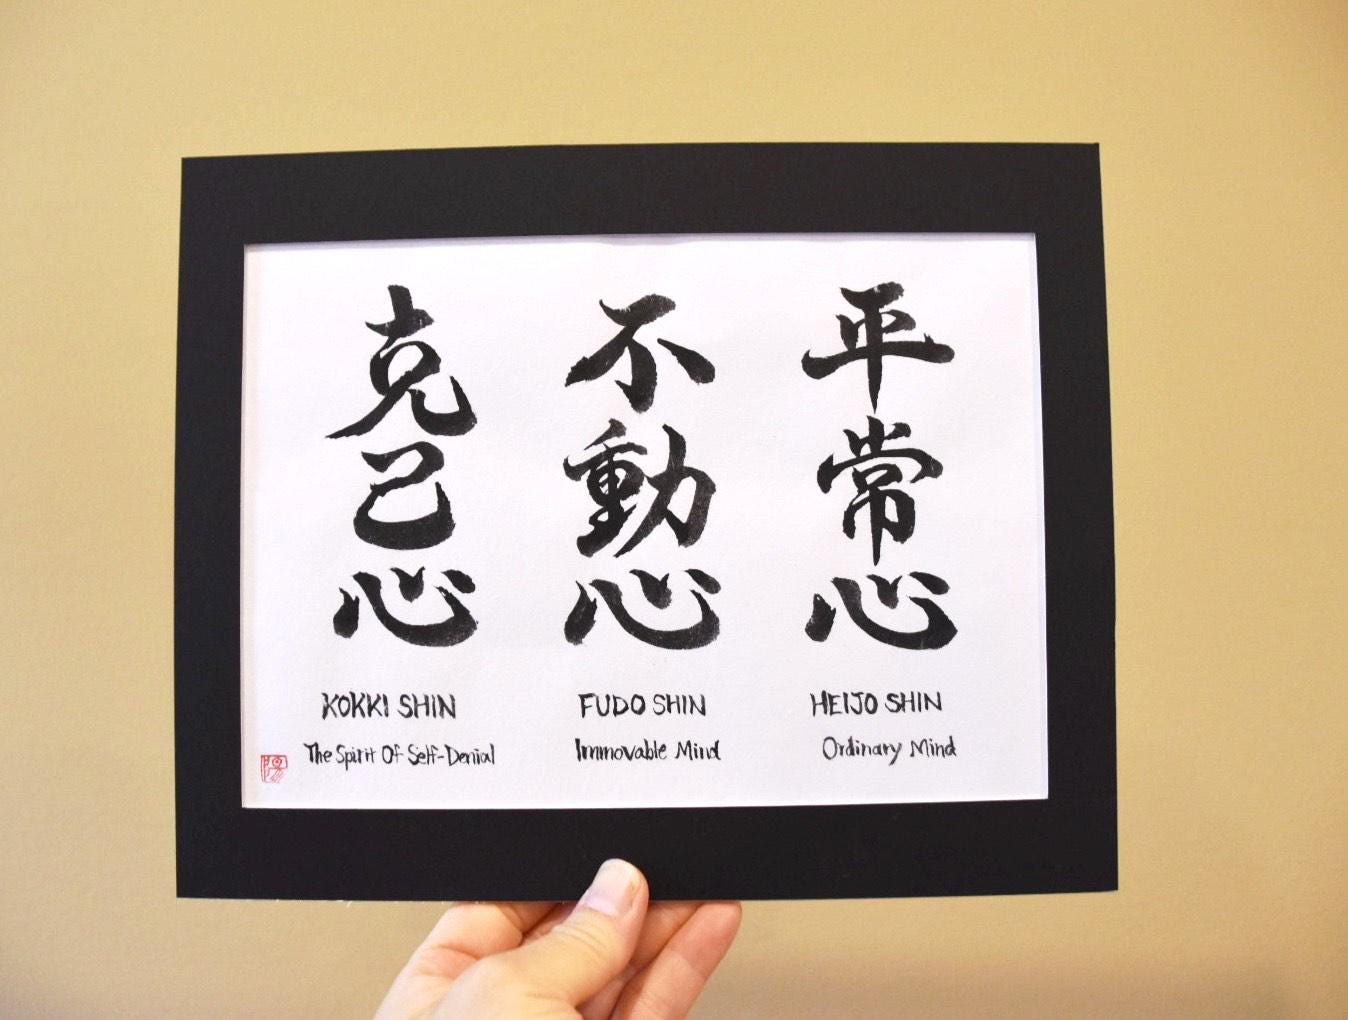 平常心
不動心
克己心
KOKKI SHIN
The Spirit Of Self-Denial
FUDO SHIN
Immovable Mind
HEIJO SHIN
Ordinary Mind